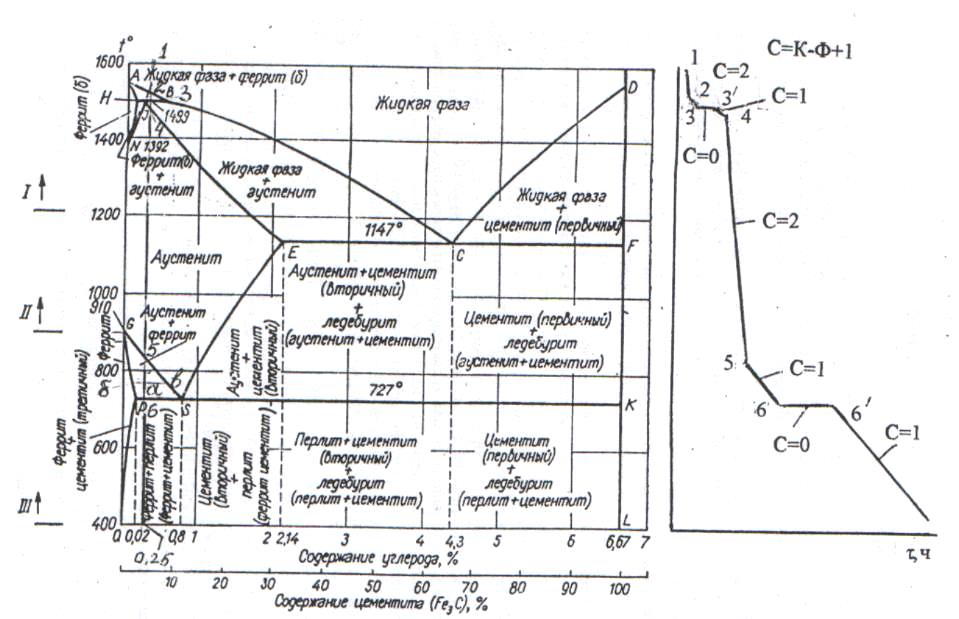 t°
1600
1400
1200
1000
910
800
600
400
I
II
III
1
A
Жидкая фаза + феррит (δ)
2
B
3
H
J
1499
4
N 1392
Феррит (δ)
Феррит(δ)
+
аустенит
Жидкая фаза
D
Жидкая фаза
+
аустенит
Жидкая фаза
+
цементит (первичный)
1147°
E
C
F
Аустенит
G
Аустенит
+
феррит
5
а
в
б
P
6
S
Феррит
Аустенит
+
цементит
(вторичный)
Аустенит+цементит
(вторичный)
+
ледебурит
(аустенит+цементит)
Цементит (первичный)
+
ледебурит
(аустенит+цементит)
727°
K
Феррит
+
цементит (третичный)
Феррит+перлит
(феррит+цементит)
Цементит
(вторичный)
+
перлит
(феррит цементит)
Перлит+цементит
(вторичный)
+
ледебурит
(перлит+цементит)
Цементит
(первичный)
+
ледебурит
(перлит+цементит)
L
0 0,02 0,8 1 2 2,14 3 4 4,3 5 6 6,67 7
0,25
Содержание углерода, %
10 20 30 40 50 60 70 80 90 100
Содержание цементита (Fe3C), %
C=К-Ф+1
1
C=2
2
3′
C=1
3
4
C=0
C=2
5
C=1
6
6′
C=0
C=1
τ,ч